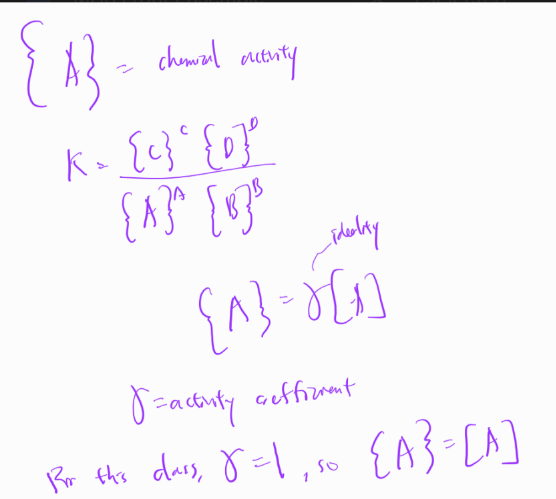 {A} = chemical activity
K = {C}^C {D}^D / {A}^A {B}^B
ideality
{A} = γ[A]
γ = activity coefficient
For this class, γ = 1, so {A} = [A]